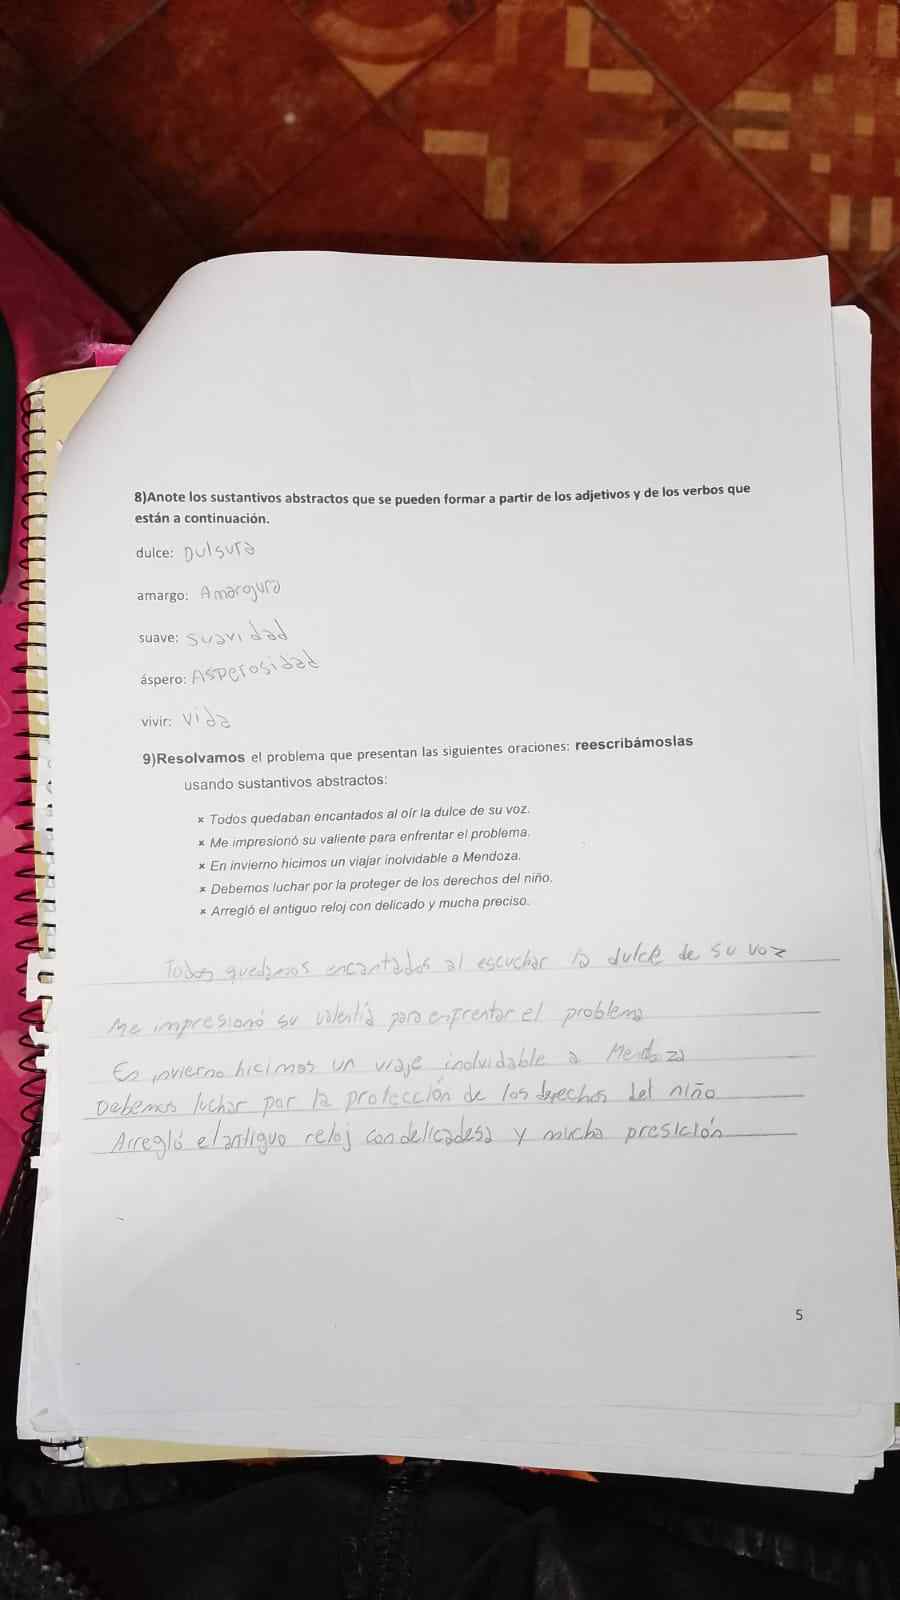 8)Anote los sustantivos abstractos que se pueden formar a partir de los adjetivos y de los verbos que
están a continuación.
dulce: Dulsura
amargo: Amargura
suave: suavidad
áspero: Asperosidad
vivir: vida
9)Resolvamos el problema que presentan las siguientes oraciones: reescribámoslas
usando sustantivos abstractos:
× Todos quedaban encantados al oír la dulce de su voz.
× Me impresionó su valiente para enfrentar el problema.
× En invierno hicimos un viajar inolvidable a Mendoza.
× Debemos luchar por la proteger de los derechos del niño.
× Arregló el antiguo reloj con delicado y mucha preciso.
Todos quedamos encantados al escuchar la dulce de su voz
Me impresionó su valentía para enfrentar el problema
En invierno hicimos un viaje inolvidable a Mendoza
Debemos luchar por la protección de los derechos del niño
Arregló el antiguo reloj con delicadesa y mucha presición
5